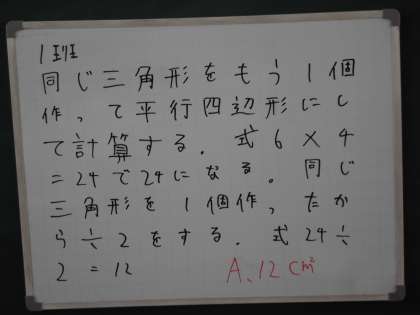 1班
同じ三角形をもう1個
作って平行四辺形にし
て計算する。式6×4
=24で24になる。同じ
三角形を1個作ったか
ら÷2をする。式24÷
2=12
A、12cm²